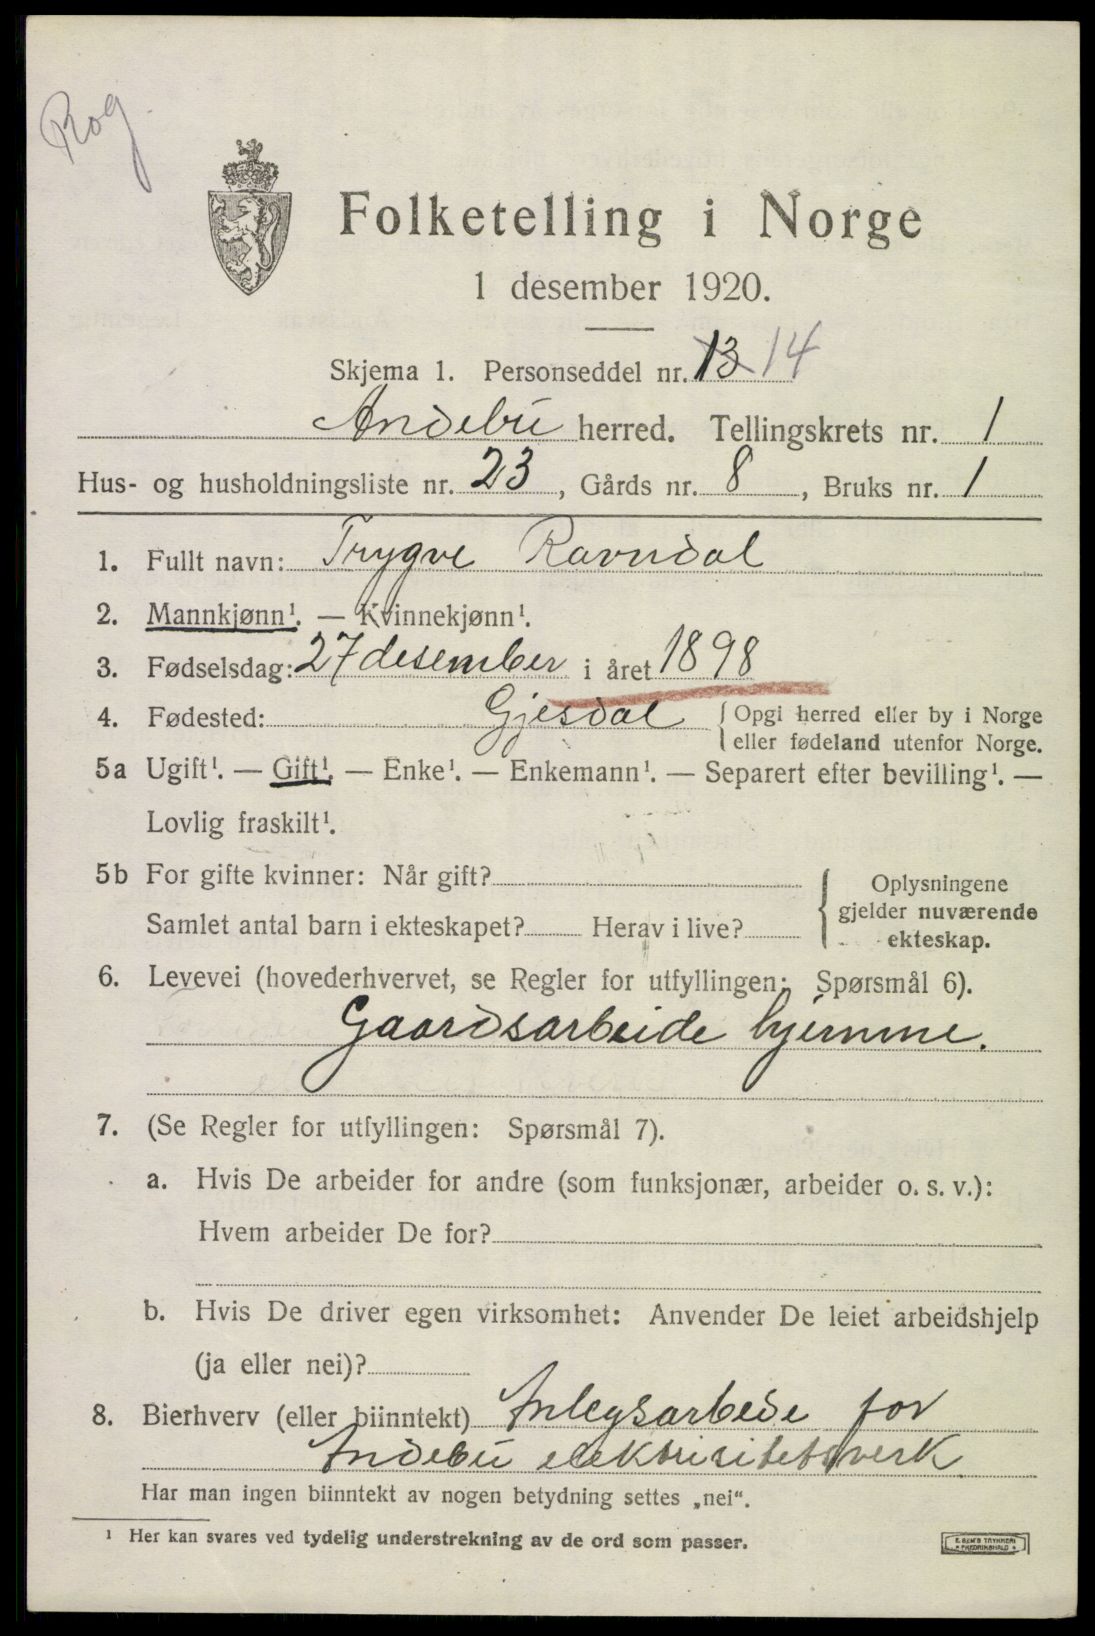 Rog.
Folketelling i Norge
1 desember 1920.
Skjema 1. Personseddel nr. 13 14
Andebu herred. Tellingskrets nr. 1
Hus- og husholdningsliste nr. 23, Gårds nr. 8, Bruks nr. 1
1. Fullt navn: Trygve Ravndal
2. Mannkjønn¹. — Kvinnekjønn¹.
3. Fødselsdag: 27 desember i året 1898
4. Fødested: Gjesdal { Opgi herred eller by i Norge
eller fødeland utenfor Norge.
5a Ugift¹. — Gift¹. — Enke¹. — Enkemann¹. — Separert efter bevilling¹. —
Lovlig fraskilt¹.
5b For gifte kvinner: Når gift?
Samlet antal barn i ekteskapet? Herav i live?
Oplysningene
gjelder nuværende
ekteskap.
6. Levevei (hovederhvervet, se Regler for utfyllingen: Spørsmål 6).
Gaardsarbeide hjemme.
7. (Se Regler for utfyllingen: Spørsmål 7).
a. Hvis De arbeider for andre (som funksjonær, arbeider o. s. v.):
Hvem arbeider De for?
b. Hvis De driver egen virksomhet: Anvender De leiet arbeidshjelp
(ja eller nei)?
8. Bierhverv (eller biinntekt) Anlegsarbeide for
Andebu elektrisitetsverk
Har man ingen biinntekt av nogen betydning settes „nei“.
¹ Her kan svares ved tydelig understrekning av de ord som passer.
E. SEM'S TRYKKERI
FREDRIKSHALD